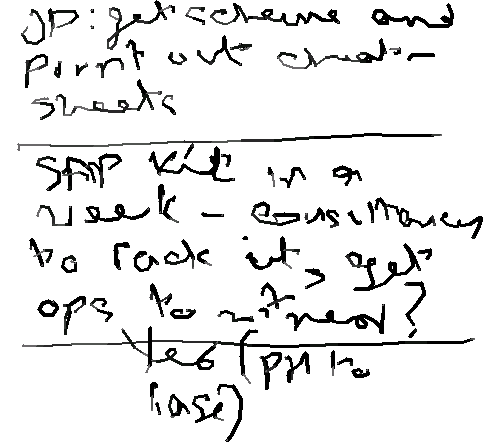 JD: get scheme and
print out cheat-
sheets
SAP kit in a
week - consultancy
to rack it, get
ops to
Yes (